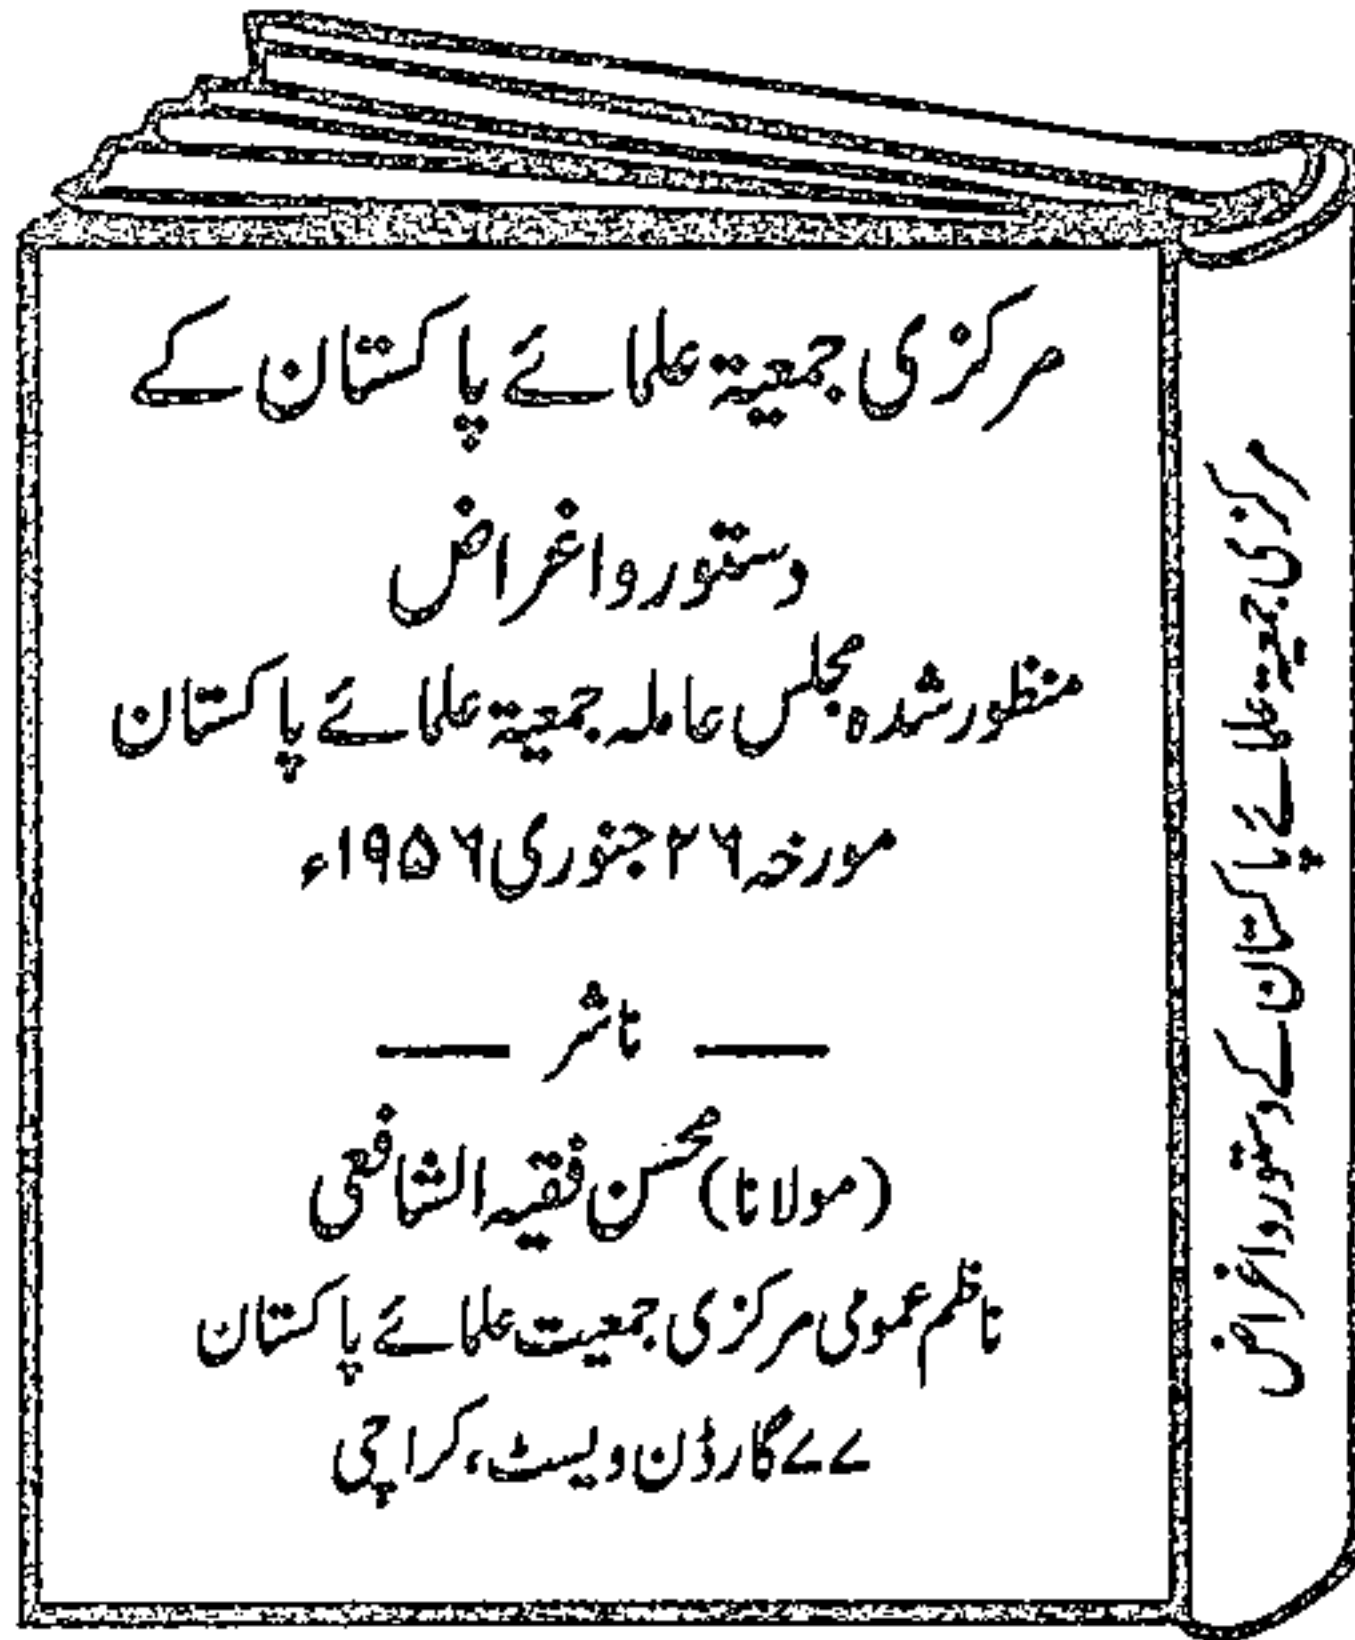 مرکزی جمعیۃ علمائے پاکستان کے
دستور و اغراض
منظور شدہ مجلس عاملہ جمعیۃ علمائے پاکستان
مورخہ ۲۶ جنوری ۱۹۵۶ء
ناشر
(مولانا) محسن فقیہ الشافعی
ناظم عمومی مرکزی جمعیت علمائے پاکستان
۷۷ گارڈن ویسٹ، کراچی
مرکزی جمعیۃ علمائے پاکستان کے دستور و اغراض